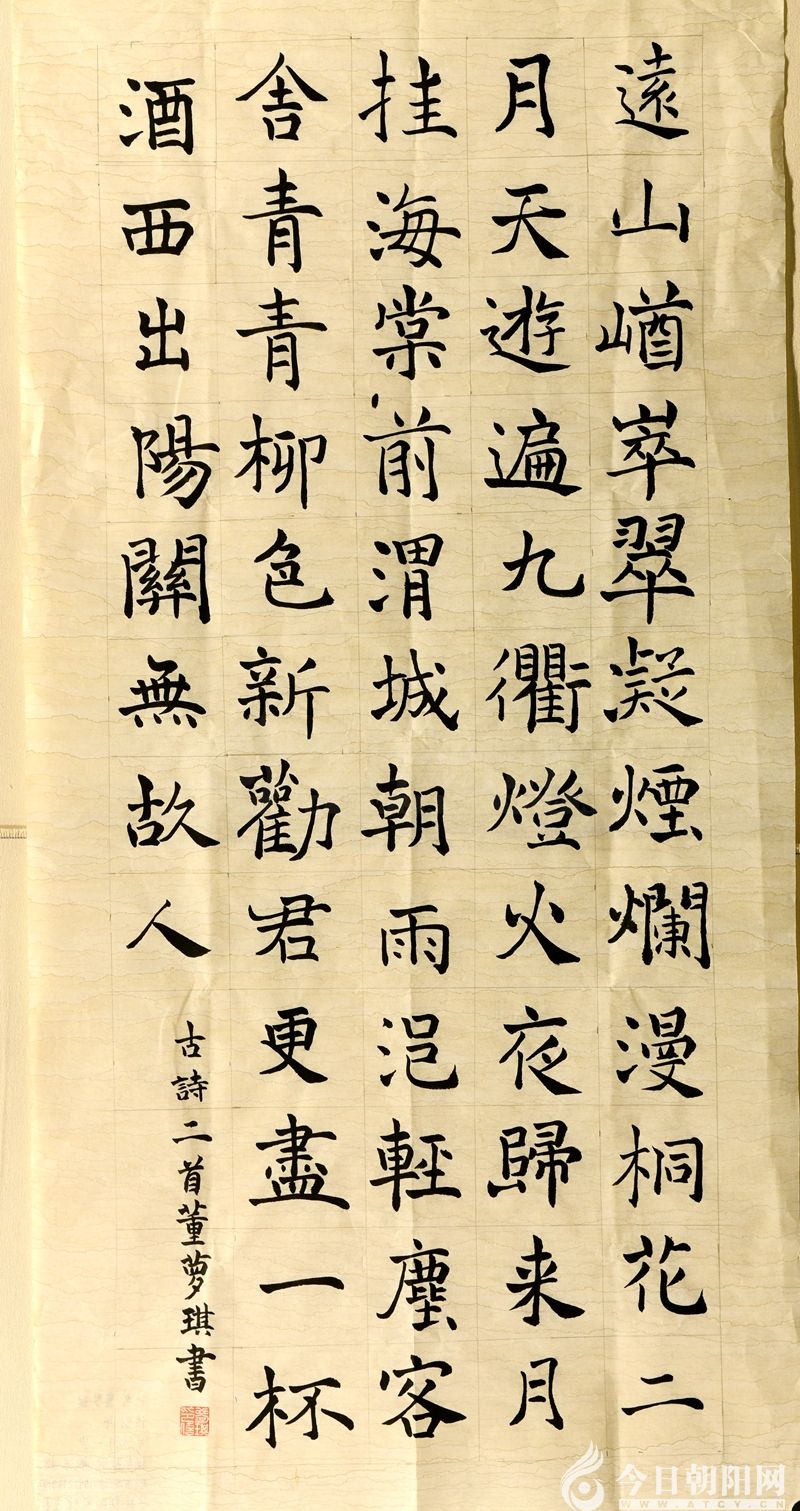 遠山崷崒翠凝煙爛漫桐花二
月天遊遍九衢燈火夜歸来月
挂海棠前渭城朝雨浥輕塵客
舍青青柳色新勸君更盡一杯
酒西出陽關無故人
古詩二首董萝琪書
今日朝阳网
WWW.ATCY.CN